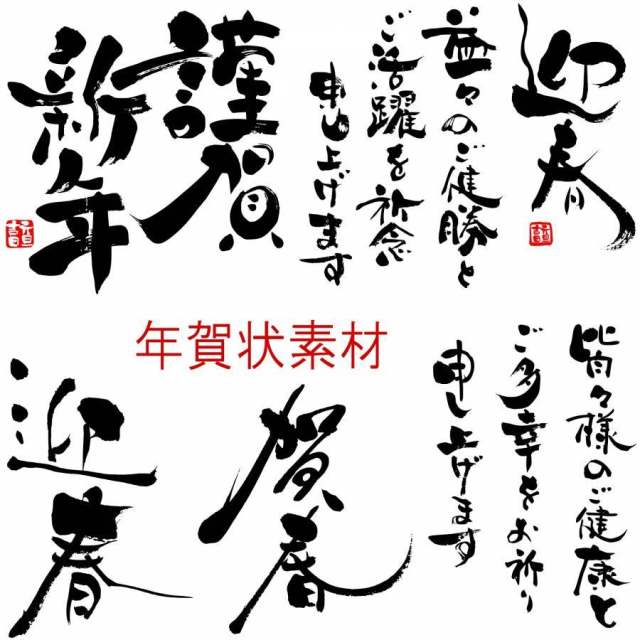 迎春
益々のご健勝と
ご活躍を祈念
申し上げます
謹賀
新年
年賀状素材
皆々様のご健康と
ご多幸をお祈り
申し上げます
賀春
迎春